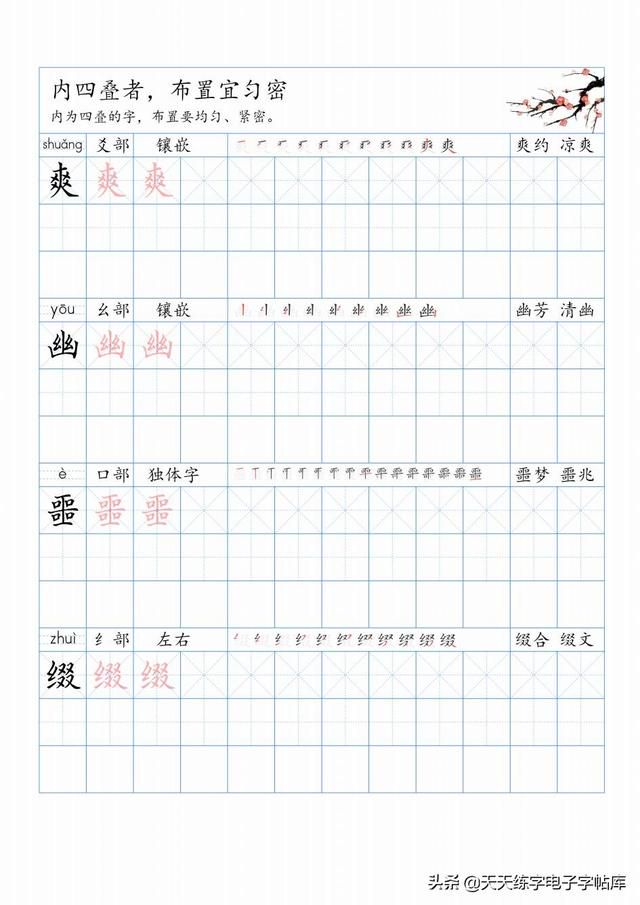 内四叠者，布置宜匀密
内为四叠的字，布置要均匀、紧密。
shuǎng 爻部 镶嵌 爽约 凉爽
爽 爽 爽
yōu 幺部 镶嵌 幽芳 清幽
幽 幽 幽
è 口部 独体字 噩梦 噩兆
噩 噩 噩
zhuì 纟部 左右 缀合 缀文
缀 缀 缀
头条 @天天练字电子字帖库